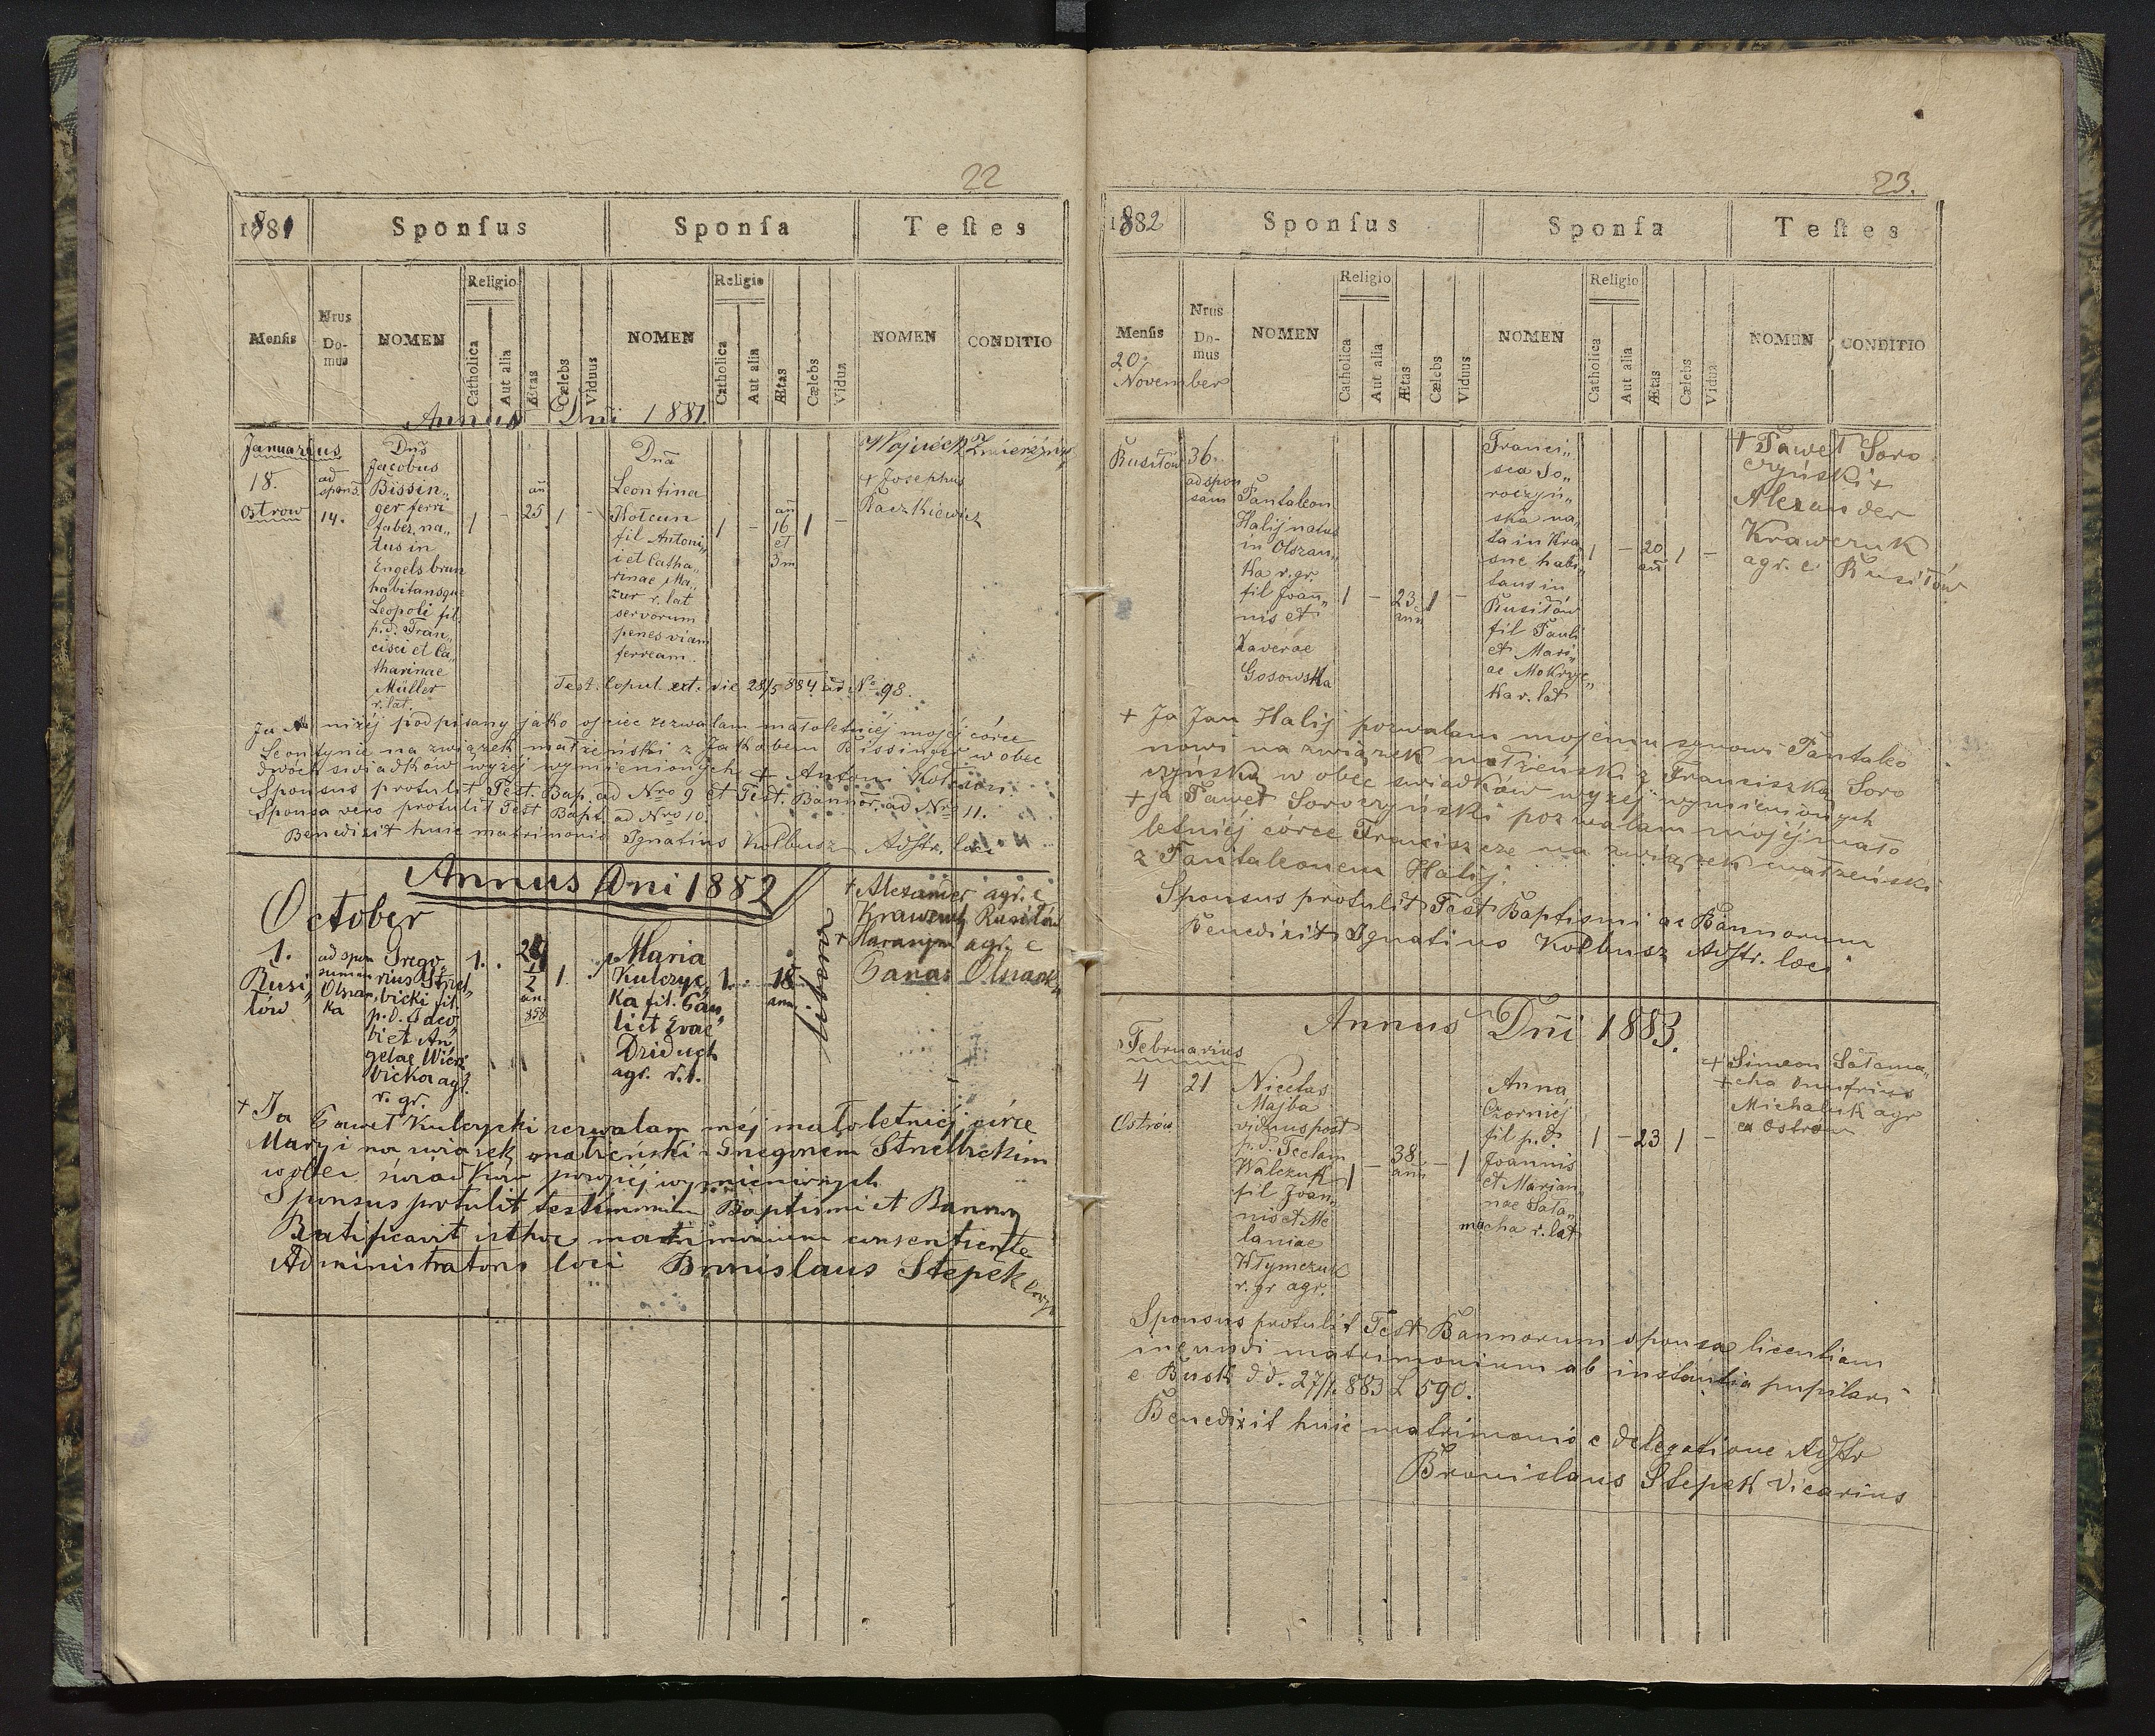 22
1881 Sponsus Sponsa Testes
Mensis Nrus Domus NOMEN Religio Catholica Aut alia Ætas Cælebs Viduus NOMEN Religio Catholica Aut alia Ætas Cælebs Vidua NOMEN CONDITIO
Annus Dni 1881.
Januarius
18.
Ostrow
ad
spons.
14.
Dns
Jacobus
Bissin„
ger ferri
faber, na„
tus in
Engelsbrun
habitansque
Leopoli fil.
p.d. Fran„
cisci et Ca„
tharinae
Müller
r. lat.
1 - 25 1 -
Dna
Leontina
Kotcun
fil Antoni„
i et Catha„
rinae Ma„
zur r. lat
servorum
penes viam
ferream.
1 - an 16 et 3m 1 -
+ Josephus
Raczkiewicz
Test. Copul. ext. die 28/5 884 ad No 98.
Ja niżej podpisany jako ojciec zezwalam małoletniéj mojéj córce
Leontynie na związek małżeński z Jakobem Bissinger w obec
dwóch swiadków wyżéj wymienionych + Antoni
Sponsus protulit Test. Bap. ad Nro 9 et Test. Bannor. ad Nro 11.
Sponsa vero protulit Test Bapt. ad Nro 10.
Benedixit huic matrimonio Ignatius Kolbusz Adstr. loci
Annus Dni 1882
October
1.
Rusi„
łów
ad spon
sum in
Olszan„
ka
Grego„
rius Strzel„
bicki fil.
p.d. Jaco„
bi et An„
gelae Wierz„
bicka agr.
r. gr.
1. 24 1/2 an. 858 1.
Maria
Kulczyc„
ka fil. Pau„
li et Evae
Dziduch
agr. r. l.
1. 18 ann.
+ Alexander agr. e
Krawczuk Rusiłów
+ Harasym agr. e
Panas Olszanka
+ Ja Paweł Kulczycki zezwalam méj małoletniéj córce
Maryi na związek małżeński z Gregorem Strzelbickim
wobec świadków powyżéj wymienionych
Sponsus protulit testimonium Baptismi et Bannor
Ratificavit isthoc matrimonium consentiente
Administratoris loci Bronislaus Stepek
23.
1882 Sponsus Sponsa Testes
Mensis Nrus Domus NOMEN Religio Catholica Aut alia Ætas Cælebs Viduus NOMEN Religio Catholica Aut alia Ætas Cælebs Vidua NOMEN CONDITIO
20.
November
Rusiłów
36.
ad spon
sam
Pantaleon
Halij natus
in Olszan„
ka r. gr.
fil Joan„
nis et
Xaverae
Gosowska
1 - 23 ann 1 -
Franci„
sca So„
roczyń„
ska na„
ta in Kra„
sne habi„
tans in
Rusiłów
fil Pauli
et Mari„
ae Mokrzyc„
ka r. lat
1 - 20 an 1 -
+ Paweł Soro
czyński +
Alexander
Krawczuk
agr. e Rusiłów
+ Ja Jan Halij pozwalam mojemu synowi Pantale
nowi na związek małżeński z Franciszką Soro
czyńską w obec swiadków wyżéj wymienionych
+ Ja Paweł Soroczyński pozwalam mojéj mało
letniéj córce Franciszce na związek małżeński
z Pantaleonem Halij.
Sponsus protulit Test Baptismi ac Bannorum
Benedixit Ignatius Kolbusz Adstr. loci
Annus Dni 1883.
Februarius
4
Ostrów
21
Nicetas
Majba
viduus post
p.d. Teclam
Walczuk
fil Joan„
nis et Me
laniae
Kłymczuk
r. gr agr.
1 - 38 ann - 1
Anna
Czorniéj
fil p.d.
Joannis
et Marian„
nae Sała„
macha r. lat
1 - 23 1 -
+ Simeon Sałama„
+ cha Onufrius
Michaluk agr
ex Ostrów
Sponsus protulit Test Bannorum sponsa licentiam
ineundi matrimonium ab instantia pupilari
e Busk d.d. 27/1. 883 L 590.
Benedixit huic matrimonio e delegatione Adstr
Bronislaus Stepek Vicarius